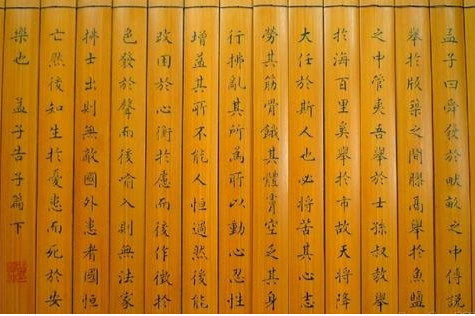 孟子曰舜發於畎畝之中傅說
舉於版築之間膠鬲舉於魚鹽
之中管夷吾舉於士孫叔敖舉
於海百里奚舉於市故天將降
大任於斯人也必將苦其心志
勞其筋骨餓其體膚空乏其身
行拂亂其所為所以動心忍性
增益其所不能人恒過然後能
改困於心衡於慮而後作徵於
色發於聲而後喻入則無法家
拂士出則無敵國外患者國恒
亡然後知生於憂患而死於安
樂也 孟子告子篇下